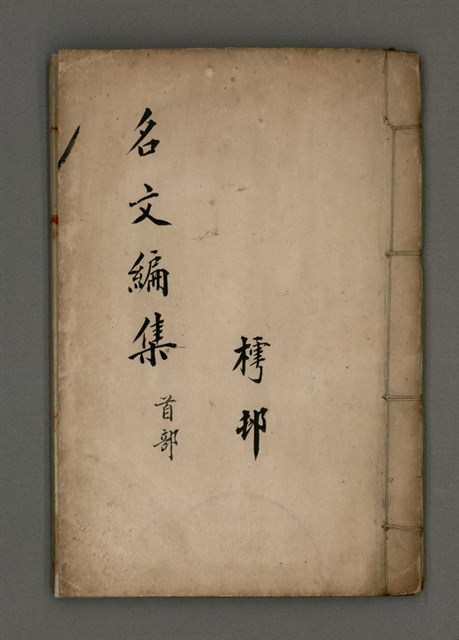 樗邨
名文編集
首部